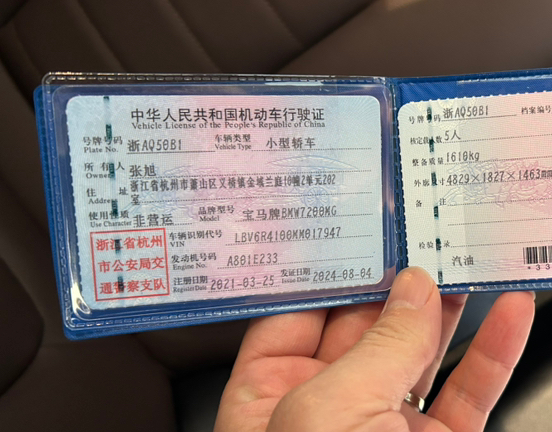 中华人民共和国机动车行驶证
Vehicle License of the People's Republic of China
号牌号码 浙AQ50B1 车辆类型 小型轿车
Plate No. Vehicle Type
所有人 张旭
Owner
住址 浙江省杭州市萧山区义桥镇金域兰庭10幢2单元202
Address 室
使用性质 非营运 品牌型号 宝马牌BMW7200MG
Use Character Model
浙江省杭州
市公安局交
通警察支队
车辆识别代号 LBV6R4100MM017947
VIN
发动机号码 A801E233
Engine No.
注册日期 2021-03-25 发证日期 2024-08-04
Register Date Issue Date
号牌号码 浙AQ50B1 档案编号
核定载人数 5人
整备质量 1610kg
外廓尺寸 4829×1827×1463mm
备注
检验记录
汽油
*33